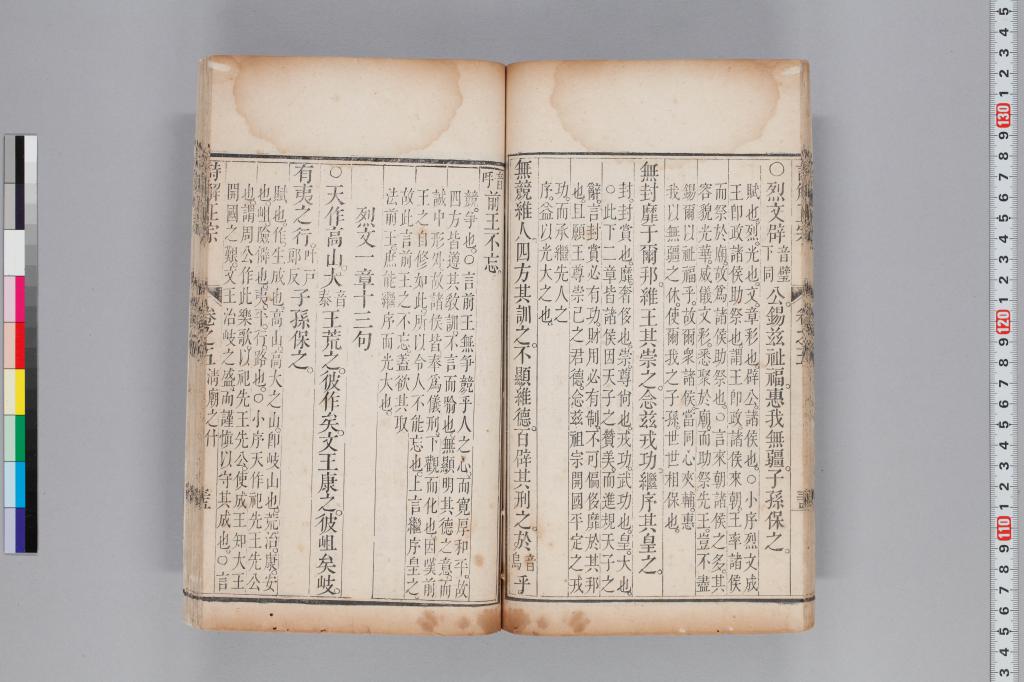 ○烈文辟音璧下同公錫茲祉福惠我無疆子孫保之
賦也烈光也文章彩也辟公諸侯也○小序烈文成
王即政諸侯助祭也謂王即政諸侯來朝王率諸侯
而祭於廟故爲諸侯助祭也○言來朝諸侯之多其
容貌光華威儀文彩悉聚於廟而助祭先王豈不盡
錫爾以祉福乎故爾衆諸侯當同心夾輔惠
我以無疆之休使爾我之子孫世世相保也
無封靡于爾邦維王其崇之念茲戎功繼序其皇之
封封賞也靡奢侈也崇尊尙也戎功武功也皇大也
○此下二章皆諸侯因天子之贊美而進規天子之
辭言封賞必有功財用必有制不可偏侈靡於其邦
也且願王尊崇己之君德念茲祖宗開國平定之戎
功而承繼先人之
序益以光大之也
無競維人四方其訓之不顯維德百辟其刑之於音烏乎
音呼前王不忘
競爭也○言前王無爭競乎人之心而寬厚和平故
四方皆遵其敎訓不言而喻也無顯明其德之意而
誠中形外故諸侯皆奉爲儀刑下觀而化也因嘆前
王之自修如此所以令人不能忘也上言繼序皇之
故此言前王之不忘蓋欲其取
法前王庶能繼序而光大也
烈文一章十三句
○天作高山大音泰王荒之彼作矣文王康之彼岨矣岐
有夷之行叶戶郎反子孫保之
賦也作生成也高山高大之山即岐山也荒治康安
也岨險僻也夷平行路也○小序天作祀先王先公
也謂周公作此樂歌以祀先王先公使成王知大王
開國之艱文王治岐之盛而謹愼以守其成也○言
詩解正宗
卷之五 淸廟之什
130
120
110